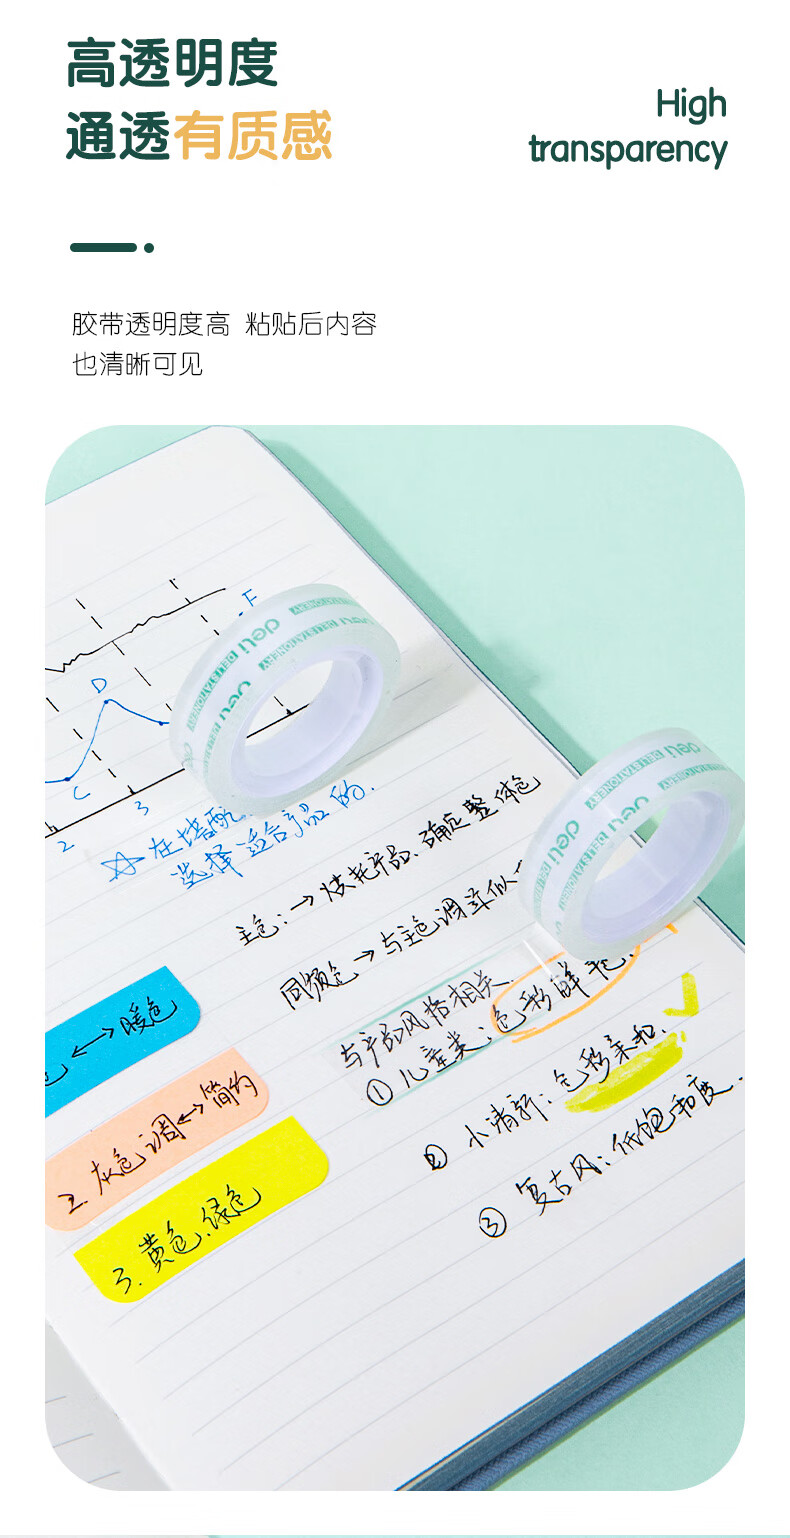 高透明度
通透有质感
High
transparency
胶带透明度高 粘贴后内容
也清晰可见
F
D
C
2
3
deli DELI STATIONERY
deli DELI STATIONERY
☆在搭配
选择适合产品的.
主色:→烘托产品.确定整体色
同频色→与主色调类似
与产品风格相关.
①儿童类:色彩鲜艳.
②小清新:色彩柔和.
③复古风:低饱和度.
色↔暖色
2.灰色调↔简约
3.黄色.绿色